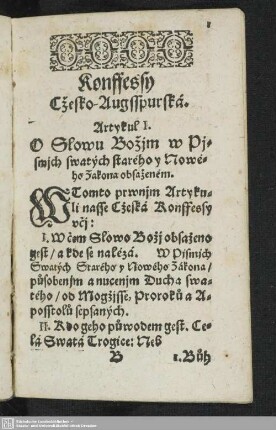 Konffessy
Cžesko-Augsspurská.
Artykul I.
O Slowu Božjm w Pj-
smjch swatých starého y Nowé-
ho Zákona obsaženém.
W Tomto prwnjm Artyku-
li nasse Cžeská Konffessy
včj:
I. W čem Slowo Božj obsaženo
gest / a kde se nalézá. W Pjsmjch
Swatých Starého y Nowého Zákona /
působenjm a nucenjm Ducha swa-
tého / od Mogžjsse, Proroků a A-
posstolů sepsaných.
II. Kdo geho půwodem gest. Ce-
lá Swatá Trogice: Neb
B 1. Bůh